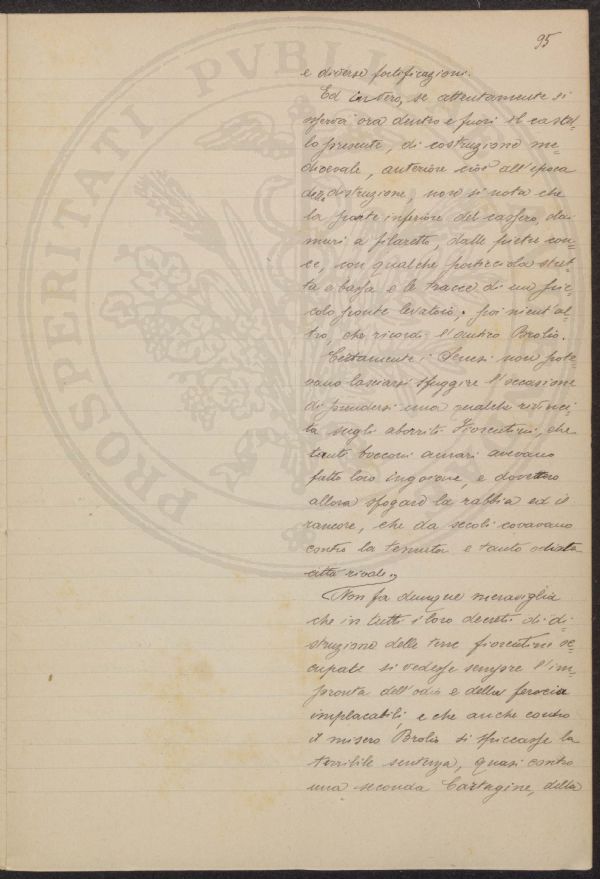 95
PROSPERITATI PVBLI
e diverse fortificazioni.
Ed in vero, se attentamente si
osserva ora dentro e fuori il castel=
lo presente, di costruzione me=
dioevale, anteriore cioè all'epoca
della distruzione, non si nota che
la parte inferiore del cassero, dai
muri a filaretto, dalle pietre con=
ce, con qualche porticciola stret=
ta e bassa e le tracce di un pic=
colo ponte levatoio; poi nient'al=
tro, che ricordi l'antico Brolio.
Certamente i Senesi non pote=
vano lasciarsi sfuggire l'occasione
di prendersi una qualche rivinci=
ta sugli aborriti Fiorentini, che
tanti bocconi amari avevano
fatto loro ingoiare, e dovettero
allora sfogare la rabbia ed il
rancore, che da secoli covavano
contro la temuta e tanto odiata
città rivale.
Non fa dunque meraviglia
che in tutti i loro decreti di di=
struzione delle terre fiorentine oc=
cupate si vedesse sempre l'im=
pronta dell'odio e della ferocia
implacabili, e che anche contro
il misero Brolio si spiccasse la
terribile sentenza, quasi contro
una seconda Cartagine, della